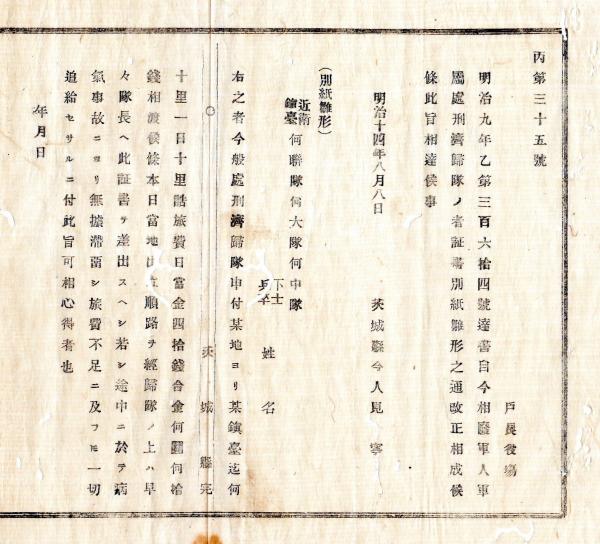 丙第三十五號
戸長役場
明治九年乙第三百六拾四號達書自今相廢軍人軍
屬處刑濟歸隊ノ者証書別紙雛形之通改正相成候
條此旨相達候事
明治十四年八月八日
茨城縣令人見寧
(別紙雛形)
近衛
鎭臺
何聯隊何大隊何中隊
下士
兵卒
姓名
右之者今般處刑濟歸隊申付某地ヨリ某鎭臺迄何
十里一日十里詰旅費日當金四拾錢合金何圓何拾
錢相渡候條本日當地出立順路ヲ經歸隊ノ上ハ早
々隊長ヘ此証書ヲ差出スヘシ若シ途中ニ於テ病
氣事故ニヨリ無據滯留シ旅費不足ニ及フモ一切
追給セサルニ付此旨可相心得者也
年月日
茨城縣